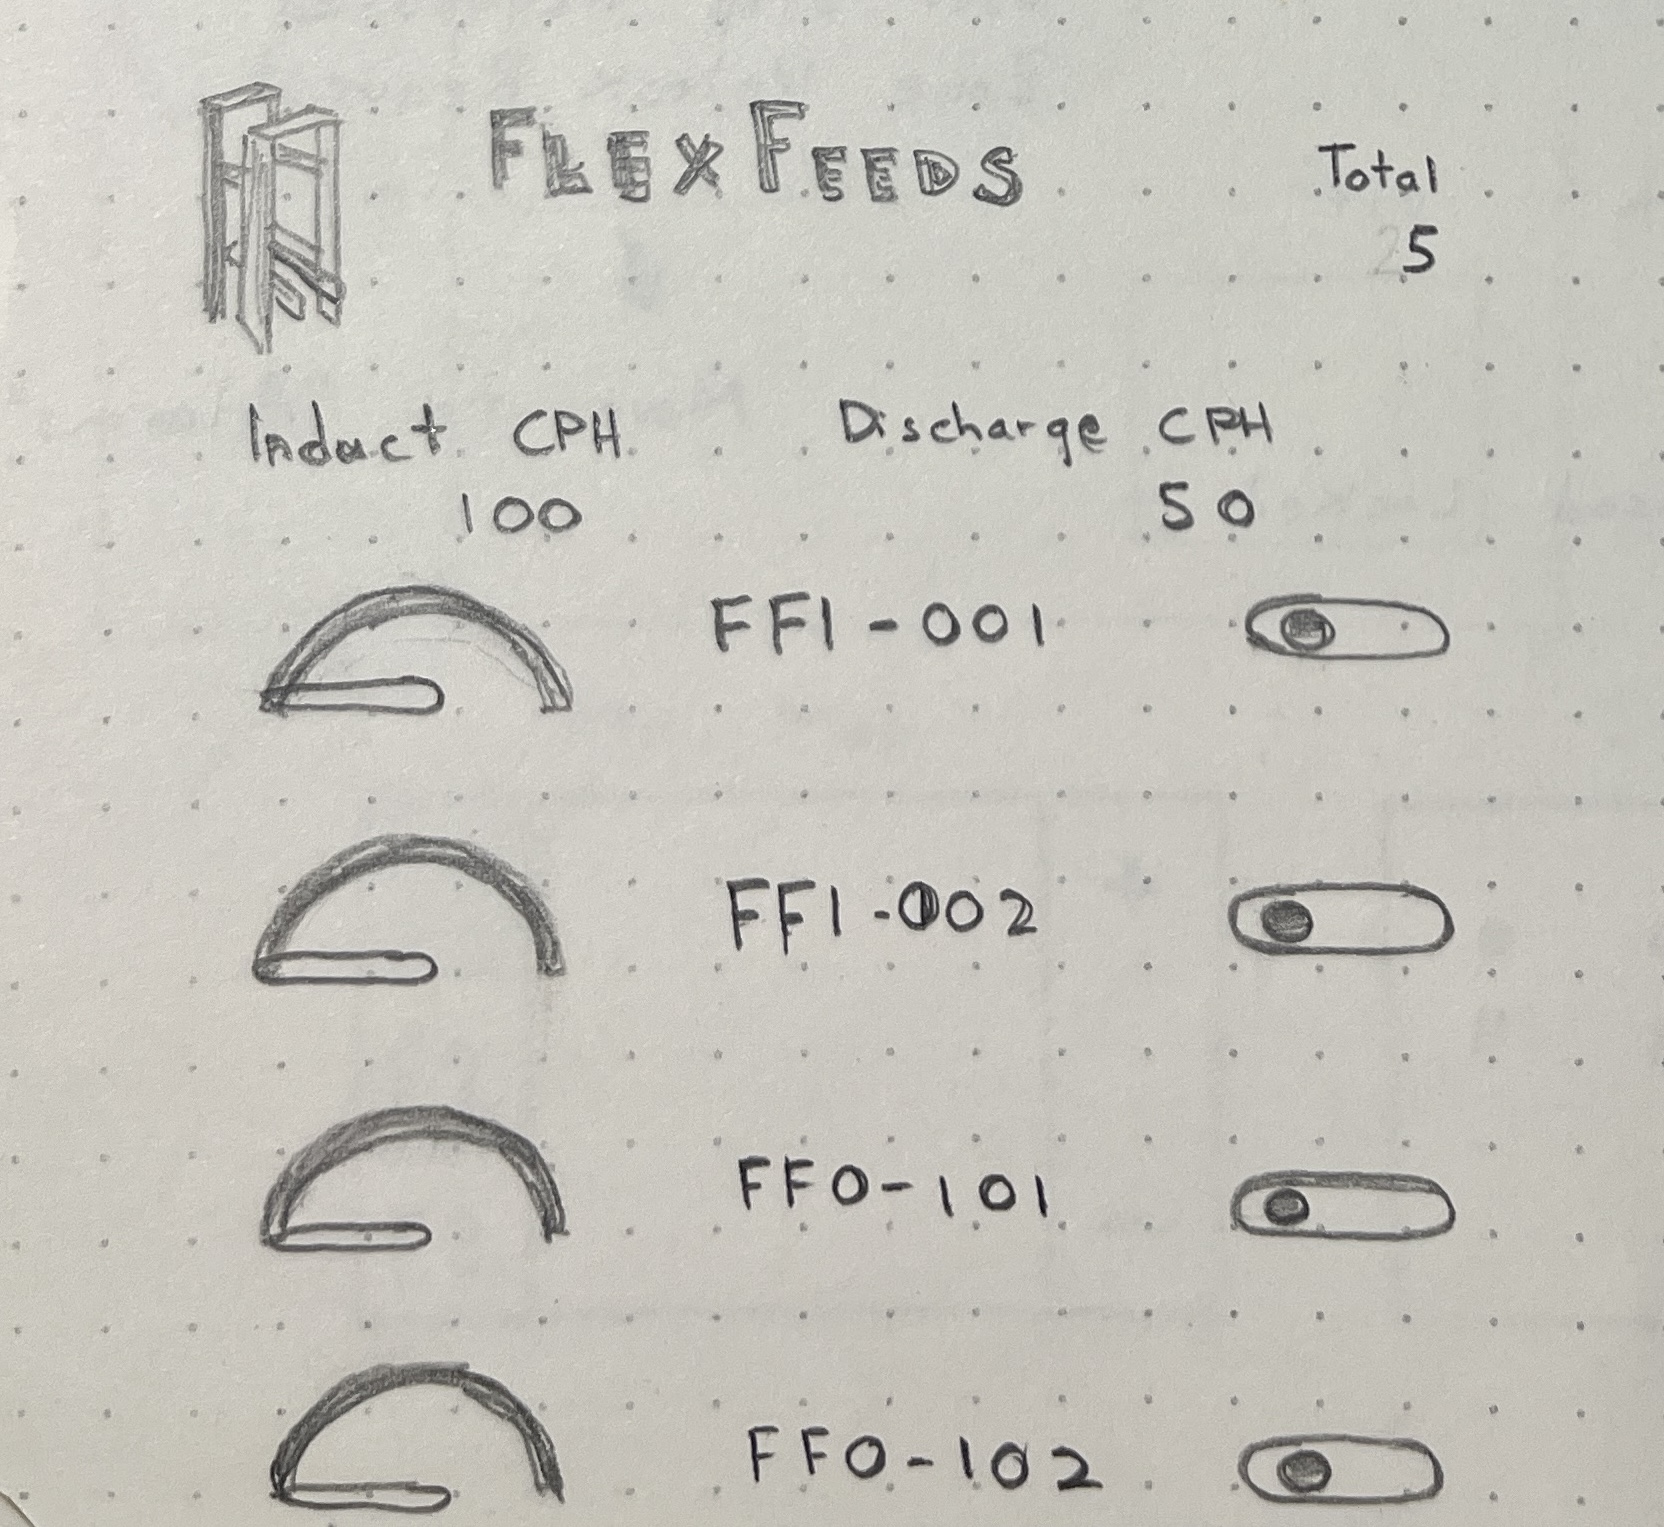 FLEXFEEDS
Total
5
Induct CPH
Discharge CPH
100
50
FFI-001
FFI-002
FFO-101
FFO-102